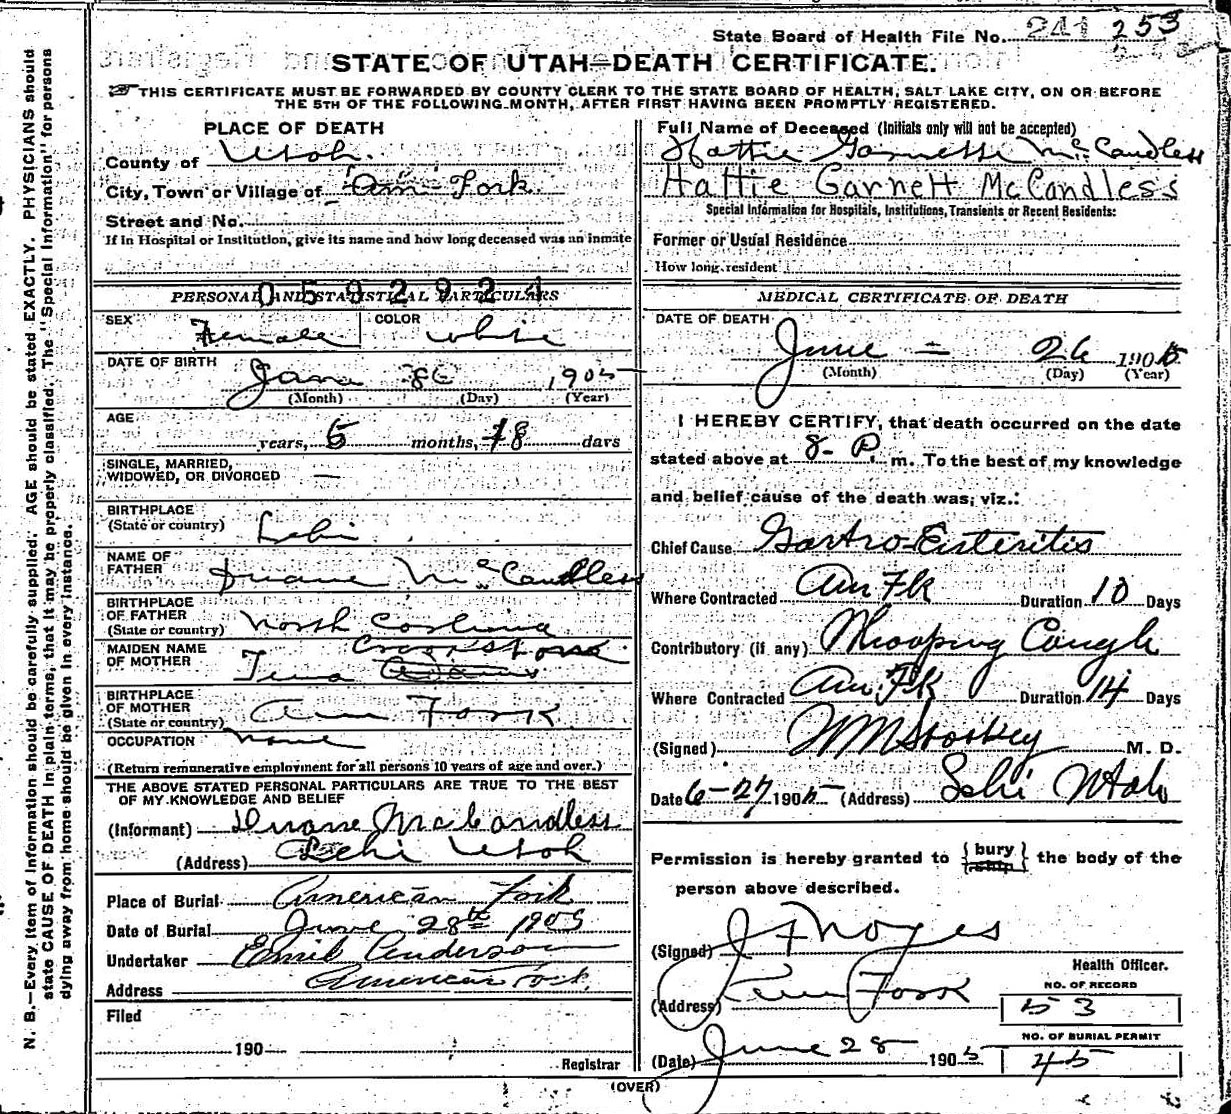 State Board of Health File No. 241 253
STATE OF UTAH—DEATH CERTIFICATE.
THIS CERTIFICATE MUST BE FORWARDED BY COUNTY CLERK TO THE STATE BOARD OF HEALTH, SALT LAKE CITY, ON OR BEFORE
THE 5TH OF THE FOLLOWING MONTH, AFTER FIRST HAVING BEEN PROMPTLY REGISTERED.
N. B.—Every item of information should be carefully supplied. AGE should be stated EXACTLY. PHYSICIANS should
state CAUSE OF DEATH in plain terms, that it may be properly classified. The "Special Information" for persons
dying away from home should be given in every instance.
PLACE OF DEATH
County of Utah.
City, Town or Village of Am Fork
Street and No.
If in Hospital or Institution, give its name and how long deceased was an inmate
059292 1
PERSONAL AND STATISTICAL PARTICULARS
SEX Female COLOR white
DATE OF BIRTH Jan 8 1905
(Month) (Day) (Year)
AGE
years, 5 months, 18 days
SINGLE, MARRIED,
WIDOWED, OR DIVORCED —
BIRTHPLACE
(State or country) Lehi
NAME OF
FATHER Duane McCandless
BIRTHPLACE
OF FATHER
(State or country) North Carolina
MAIDEN NAME
OF MOTHER Tena Crookstone
BIRTHPLACE
OF MOTHER
(State or country) Am Fork
OCCUPATION None
(Return remunerative employment for all persons 10 years of age and over.)
THE ABOVE STATED PERSONAL PARTICULARS ARE TRUE TO THE BEST
OF MY KNOWLEDGE AND BELIEF
(Informant) Duane McCandless
(Address) Lehi Utah
Place of Burial American Fork
Date of Burial June 28th 1905
Undertaker Emil Anderson
Address American Fork.
Filed
190
Registrar
Full Name of Deceased (Initials only will not be accepted)
Hattie Garnett McCandless
Hattie Garnett McCandless
Special Information for Hospitals, Institutions, Transients or Recent Residents:
Former or Usual Residence
How long resident
MEDICAL CERTIFICATE OF DEATH
DATE OF DEATH
June — 26 1905
(Month) (Day) (Year)
I HEREBY CERTIFY, that death occurred on the date
stated above at 8- P. m. To the best of my knowledge
and belief cause of the death was, viz.:
Chief Cause Gastro-Enteritis
Where Contracted Am Fk Duration 10 Days
Contributory (if any) Whooping Cough
Where Contracted Am. Fk Duration 14 Days
(Signed) WM Stookey M. D.
Date 6-27 1905 (Address) Lehi Utah
Permission is hereby granted to {bury / ship} the body of the
person above described.
(Signed) J F Noyes
Health Officer.
(Address) Am Fork
NO. OF RECORD
53
(Date) June 28 1905
NO. OF BURIAL PERMIT
45
(OVER)